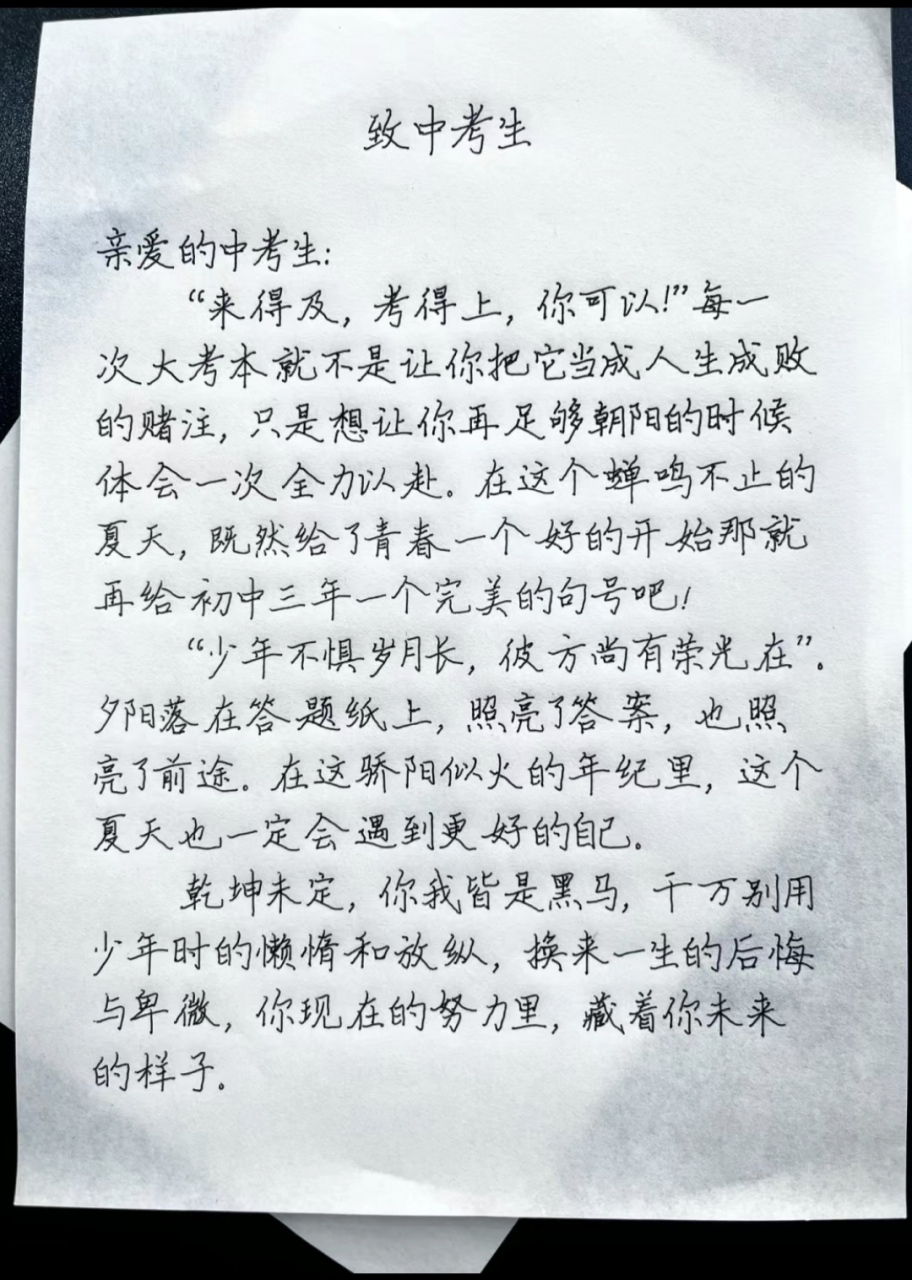 致中考生
亲爱的中考生:
“来得及，考得上，你可以!”每一
次大考本就不是让你把它当成人生成败
的赌注，只是想让你再足够朝阳的时候
体会一次全力以赴。在这个蝉鸣不止的
夏天，既然给了青春一个好的开始那就
再给初中三年一个完美的句号吧!
“少年不惧岁月长，彼方尚有荣光在”。
夕阳落在答题纸上，照亮了答案，也照
亮了前途。在这骄阳似火的年纪里，这个
夏天也一定会遇到更好的自己。
乾坤未定，你我皆是黑马，千万别用
少年时的懒惰和放纵，换来一生的后悔
与卑微，你现在的努力里，藏着你未来
的样子。